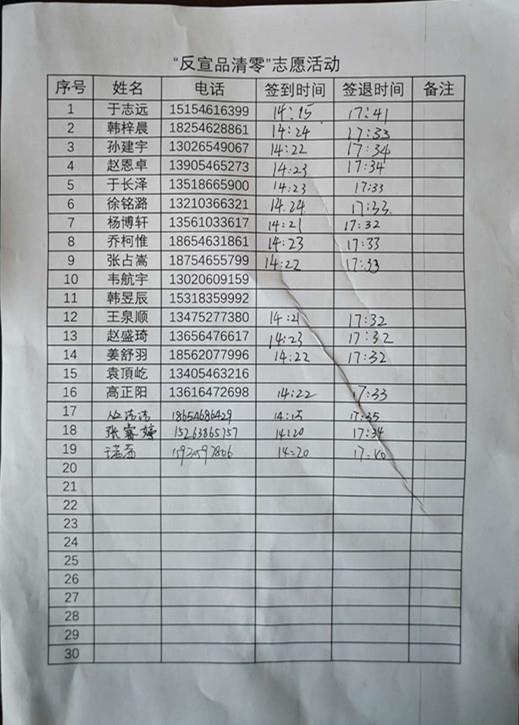 “反宣品清零”志愿活动
序号 姓名 电话 签到时间 签退时间 备注
1 于志远 15154616399 14:15 17:41
2 韩梓晨 18254628861 14:24 17:33
3 孙建宇 13026549067 14:22 17:34
4 赵恩卓 13905465273 14:23 17:34
5 于长泽 13518665900 14:23 17:33
6 徐铭潞 13210366321 14:24 17:33
7 杨博轩 13561033617 14:21 17:32
8 乔柯惟 18654631861 14:23 17:33
9 张占嵩 18754655799 14:22 17:33
10 韦航宇 13020609159
11 韩昱辰 15318359992
12 王泉顺 13475277380 14:21 17:32
13 赵盛琦 13656476617 14:23 17:32
14 姜舒羽 18562077996 14:22 17:32
15 袁頂屹 13405463216
16 高正阳 13616472698 14:22 17:33
17 18654686429 17:35
18 张睿婷 15263865757 14:20 17:34
19 14:20
20
21
22
23
24
25
26
27
28
29
30